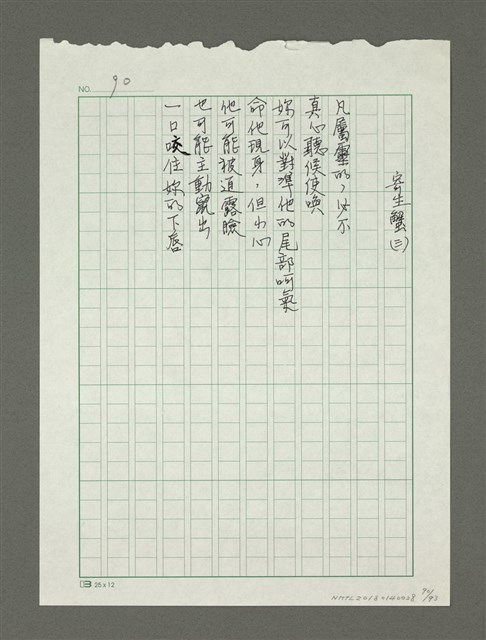 NO. 90
寄生蟹(三)
凡屬靈的，必不
真心聽候使喚
妳可以對準他的尾部呵氣
命他現身，但小心
他可能被迫露臉
也可能主動竄出
一口咬住妳的下唇
25x12
NMTL20180140028 90/93